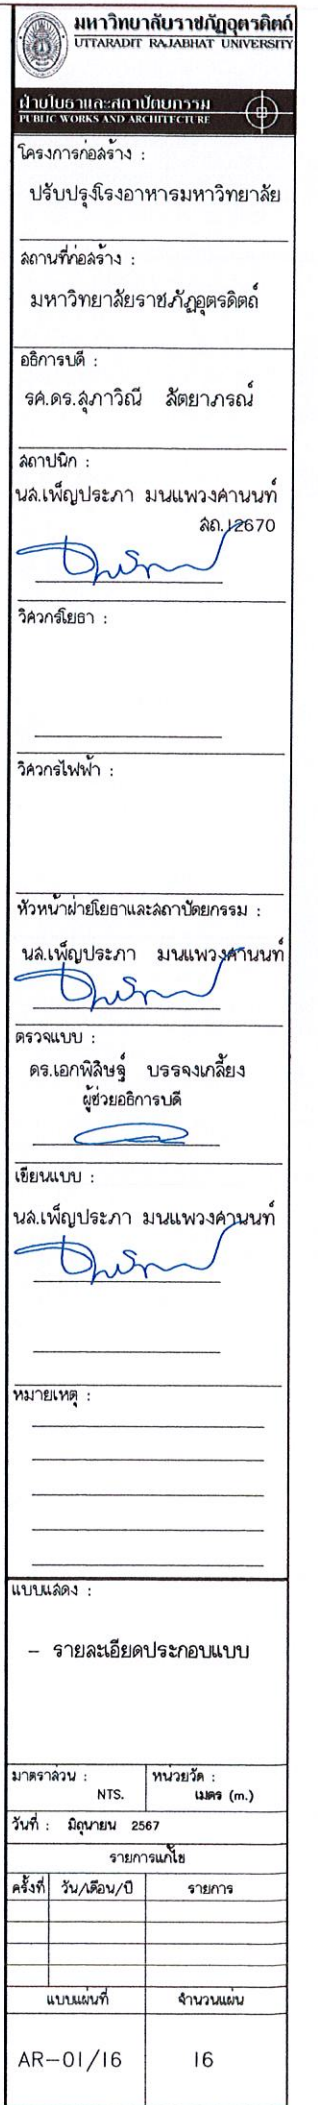 มหาวิทยาลัยราชภัฏอุตรดิตถ์
UTTARADIT RAJABHAT UNIVERSITY
ฝ่ายโยธาและสถาปัตยกรรม
PUBLIC WORKS AND ARCHITECTURE
โครงการก่อสร้าง :
ปรับปรุงโรงอาหารมหาวิทยาลัย
สถานที่ก่อสร้าง :
มหาวิทยาลัยราชภัฏอุตรดิตถ์
อธิการบดี :
รศ.ดร.สุภาวิณี สัตยาภรณ์
สถาปนิก :
นส.เพ็ญประภา มนแพวงศานนท์
สถ.12670
วิศวกรโยธา :
วิศวกรไฟฟ้า :
หัวหน้าฝ่ายโยธาและสถาปัตยกรรม :
นส.เพ็ญประภา มนแพวงศานนท์
ตรวจแบบ :
ดร.เอกพิสิษฐ์ บรรจงเกลี้ยง
ผู้ช่วยอธิการบดี
เขียนแบบ :
นส.เพ็ญประภา มนแพวงศานนท์
หมายเหตุ :
แบบแสดง :
– รายละเอียดประกอบแบบ
มาตราส่วน : หน่วยวัด :
NTS. เมตร (m.)
วันที่ : มิถุนายน 2567
รายการแก้ไข
ครั้งที่ วัน/เดือน/ปี รายการ
แบบแผ่นที่ จำนวนแผ่น
AR-01/16 16